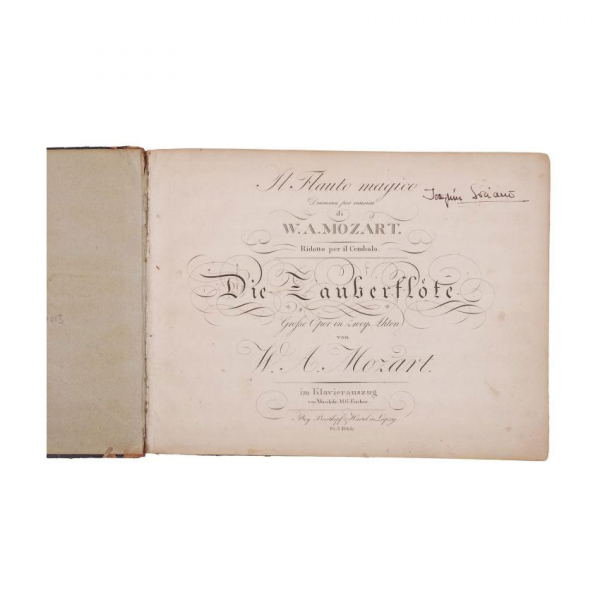 Il Flauto magico
Joaquín Soriano
Dramma per musica
di
W. A. MOZART.
Ridotto per il Cembalo
Die Zauberflöte
Große Oper in zwey Akten
von
W. A. Mozart.
im Klavierauszug
von Musikdir. M.G. Fischer
Bey Breitkopf & Härtel in Leipzig
Pr. 3 Rthlr.